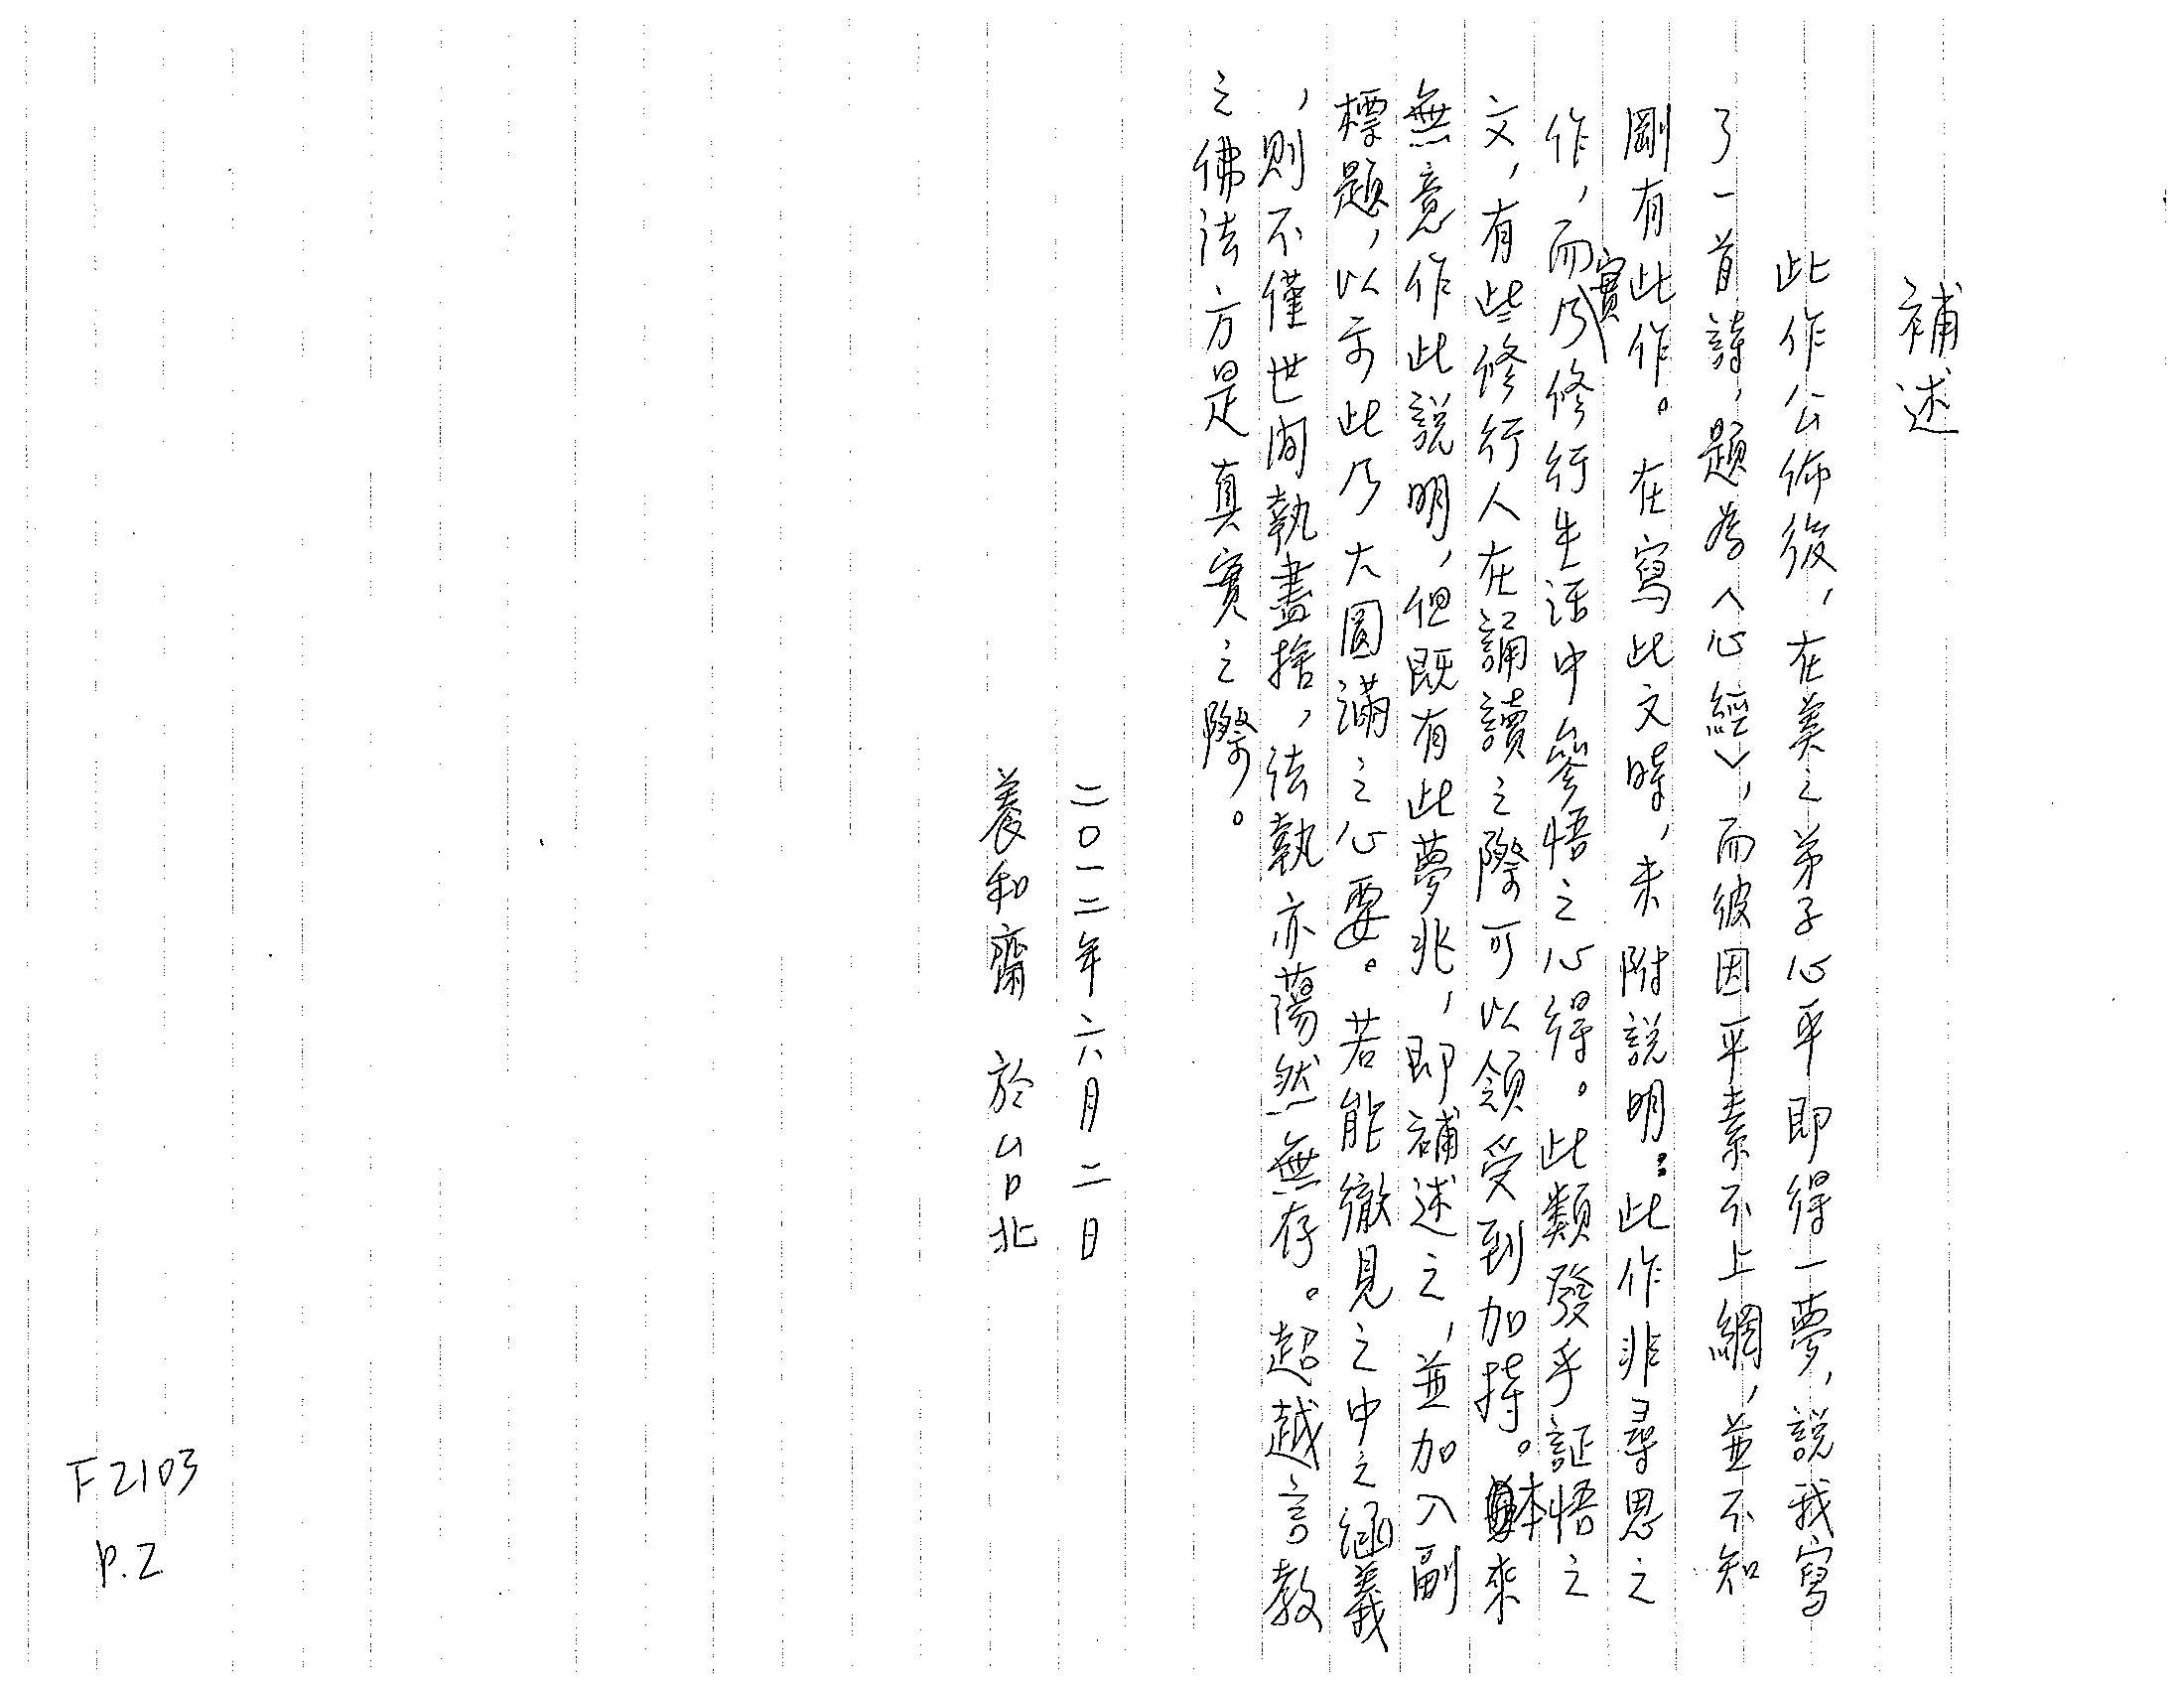 補述
此作公佈後，在美之弟子心平即得一夢，說我寫
了一首詩，題為〈心經〉，而彼因平素不上網，並不知
剛有此作。在寫此文時，未附說明：此作非尋思之
作，而實乃修行生活中參悟之心得。此類發乎証悟之
文，有些修行人在誦讀之際可以領受到加持。本來
無意作此說明，但既有此夢兆，即補述之，並加入副
標題，以示此乃大圓滿之心要。若能徹見之中之涵義
，則不僅世間執盡捨，法執亦蕩然無存。超越言教
之佛法方是真實之際。
二〇一二年六月二日
養和齋 於台北
F2103
P.2